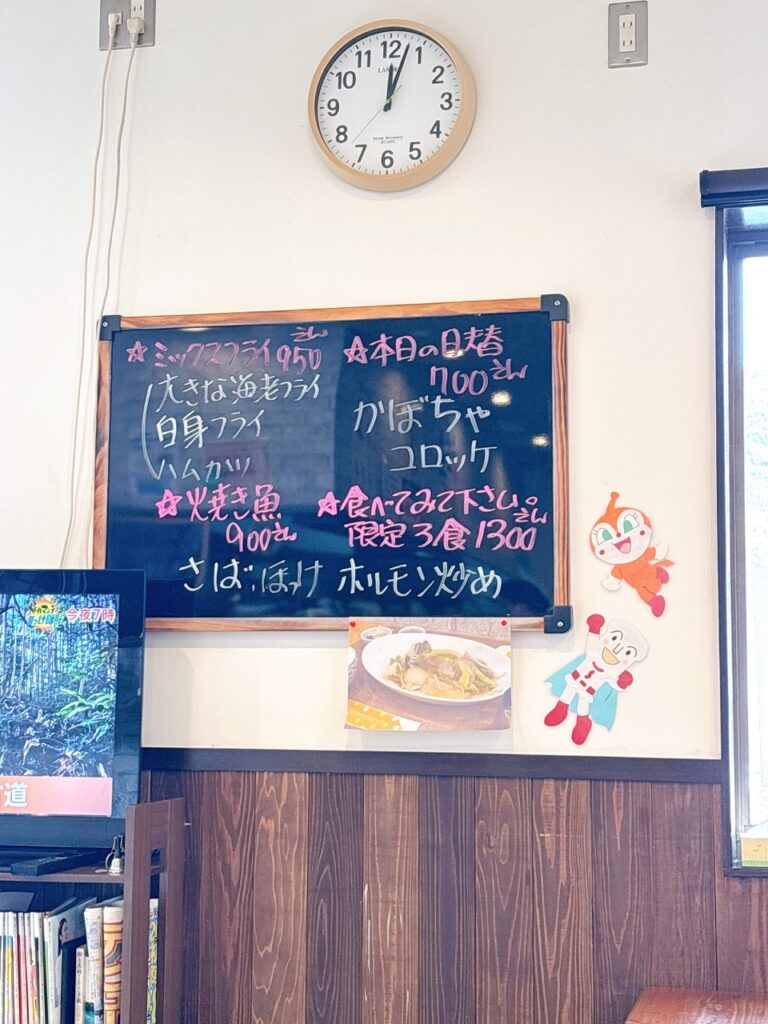 12
1
2
3
4
5
6
7
8
9
10
11
☆ミックスフライ950えん
大きな海老フライ
白身フライ
ハムカツ
☆焼き魚
900えん
さば、ほっけ
☆本日の日替
700えん
かぼちゃ
コロッケ
☆食べてみて下さい。
限定3食1300えん
ホルモン炒め
今夜7時
道